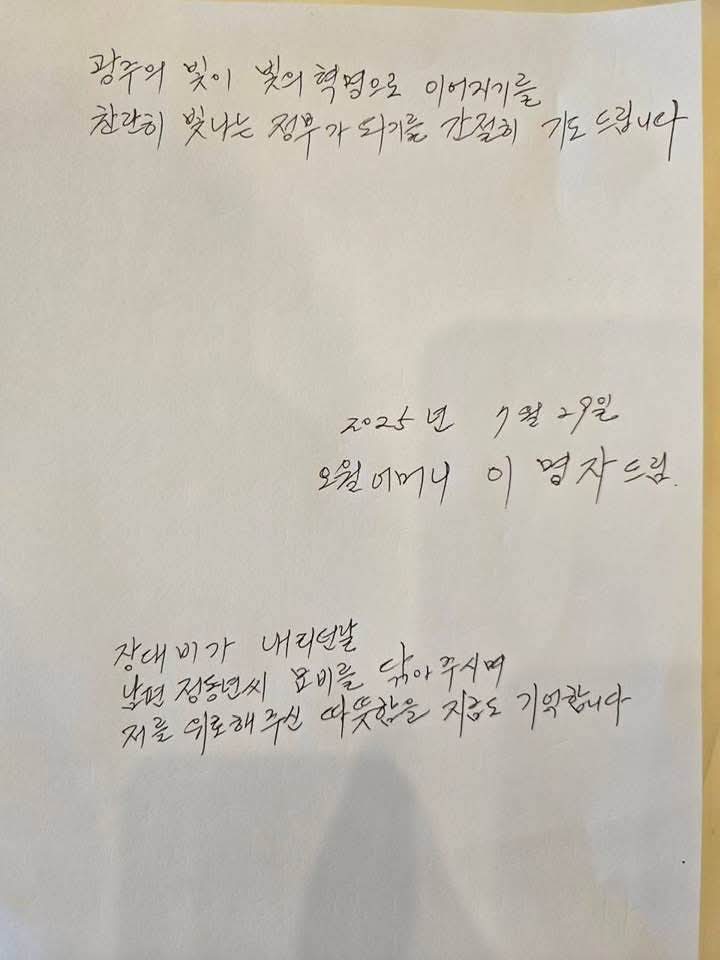 광주의 빛이 빛의 혁명으로 이어지기를
찬란히 빛나는 정부가 되기를 간절히 기도드립니다
2025년 7월 29일
오월어머니 이명자드림.
장대비가 내리던날
남편 정동년씨 묘비를 닦아주시며
저를 위로해주신 따뜻함을 지금도 기억합니다